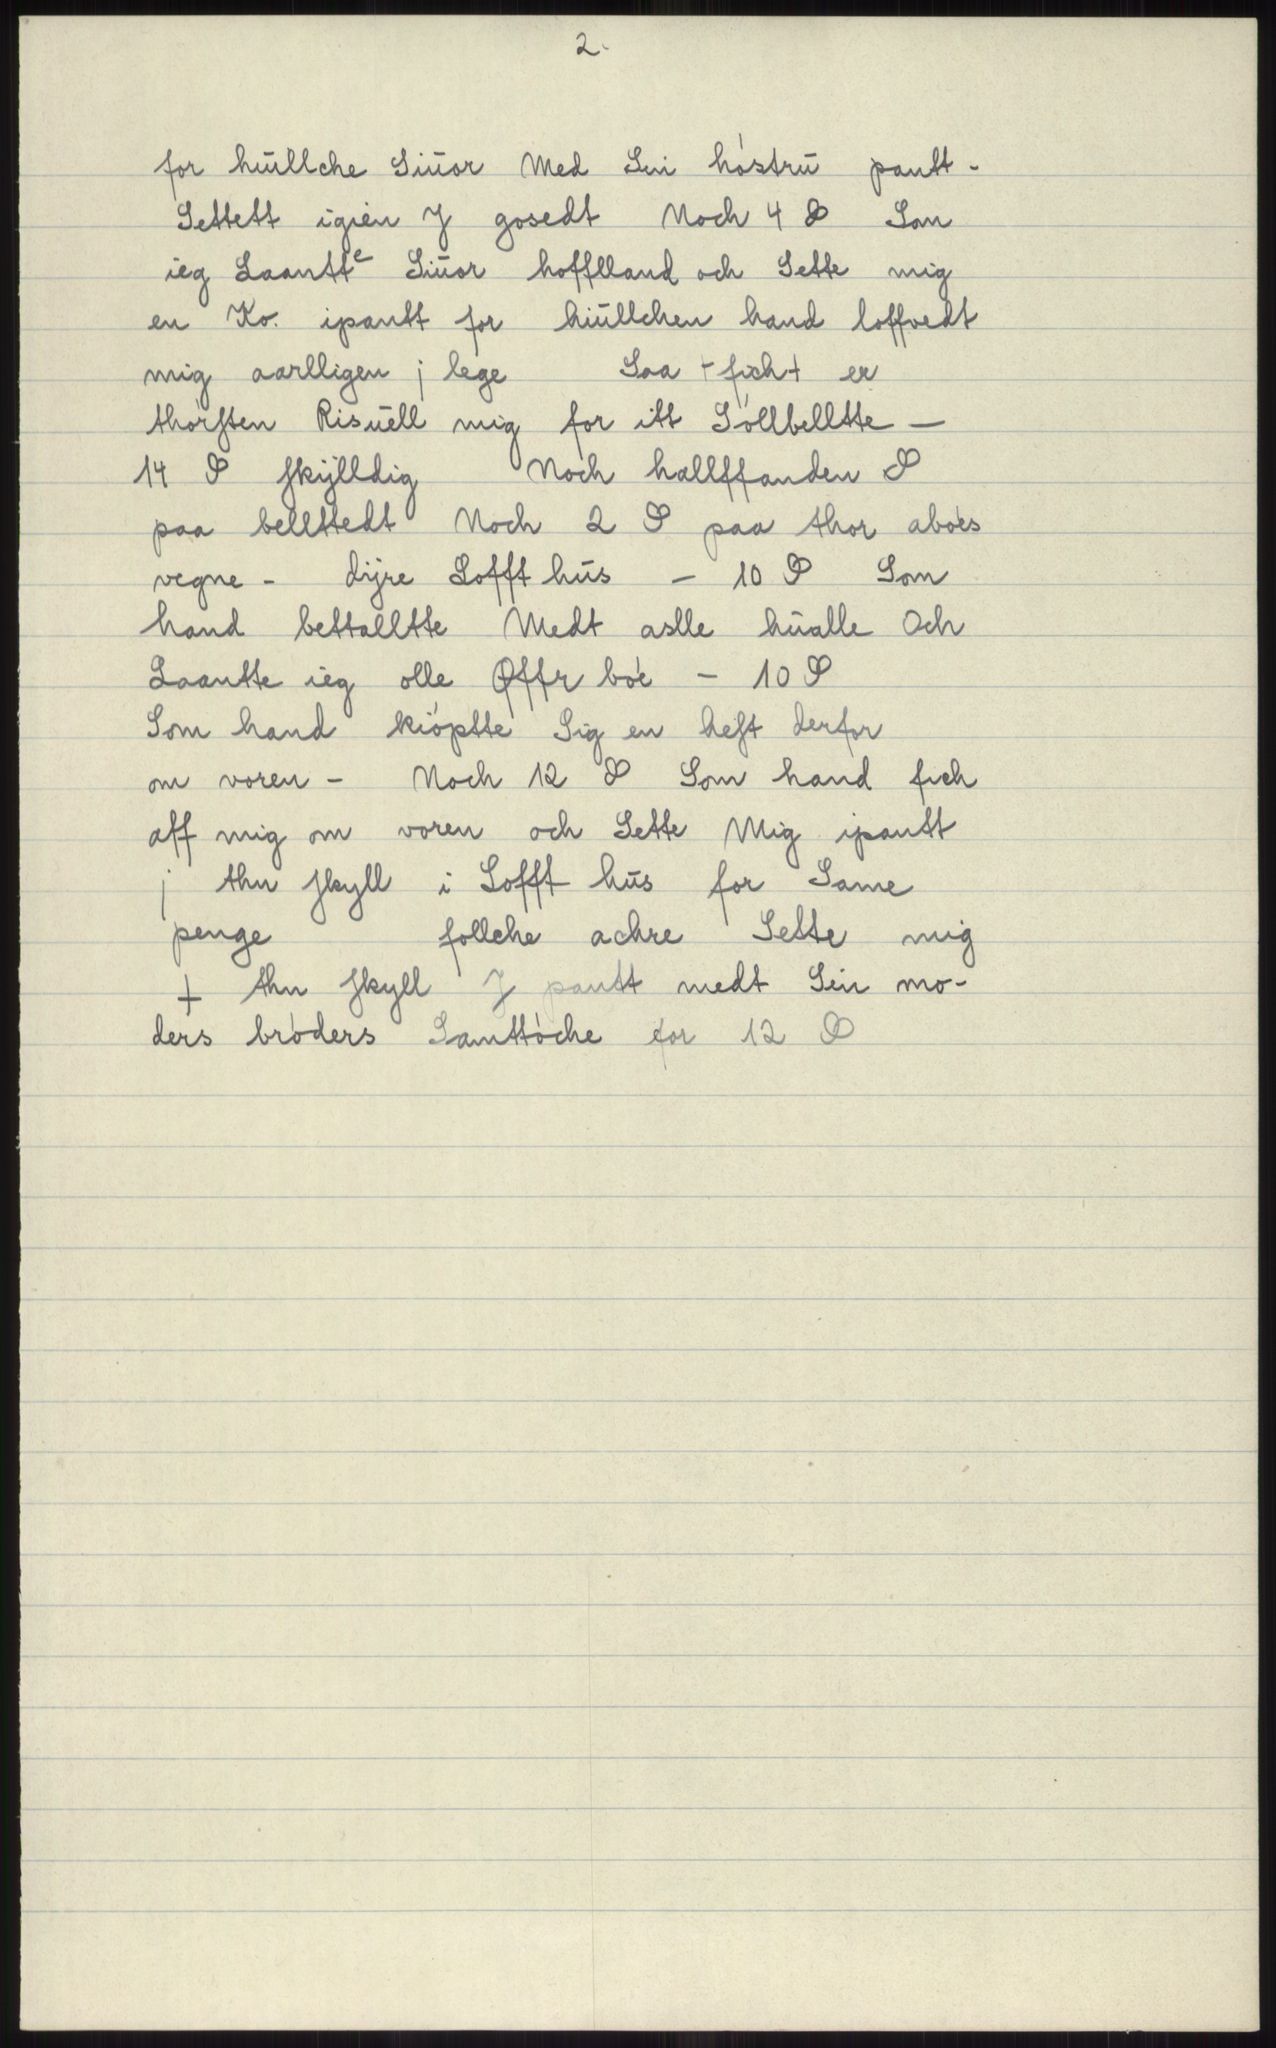 2.
for hūllche Siūor Med Sin hóstrū pantt-
Settett igien J gosedt Noch 4 ₰ Som
ieg Laantte Siūor hoffland och Sette mig
en Ko. ipantt for hūllchen hand loffvedt
mig aarlligen j lege Saa + fich + er
thórsten Risūell mig for itt Sóllbelltte —
14 ₰ skÿlldig Noch hallffanden ₰
paa bellttedt Noch 2 ₰ paa thor abóes
vegne - dÿre Lofft hūs — 10 ₰ Som
hand bettalltte Medt aslle hūalle Och
Laantte ieg olle Øffr bóe — 10 ₰
Som hand kióptte Sig en hest derfor
om voren - Noch 12 ₰ Som hand fich
aff mig om voren och Sette Mig ipantt
j thn skyll i Lofft hūs for Same
penge follche achre Sette mig
+ thn skyll J pantt medt Sin mo-
ders bróders Samttóche for 12 ₰